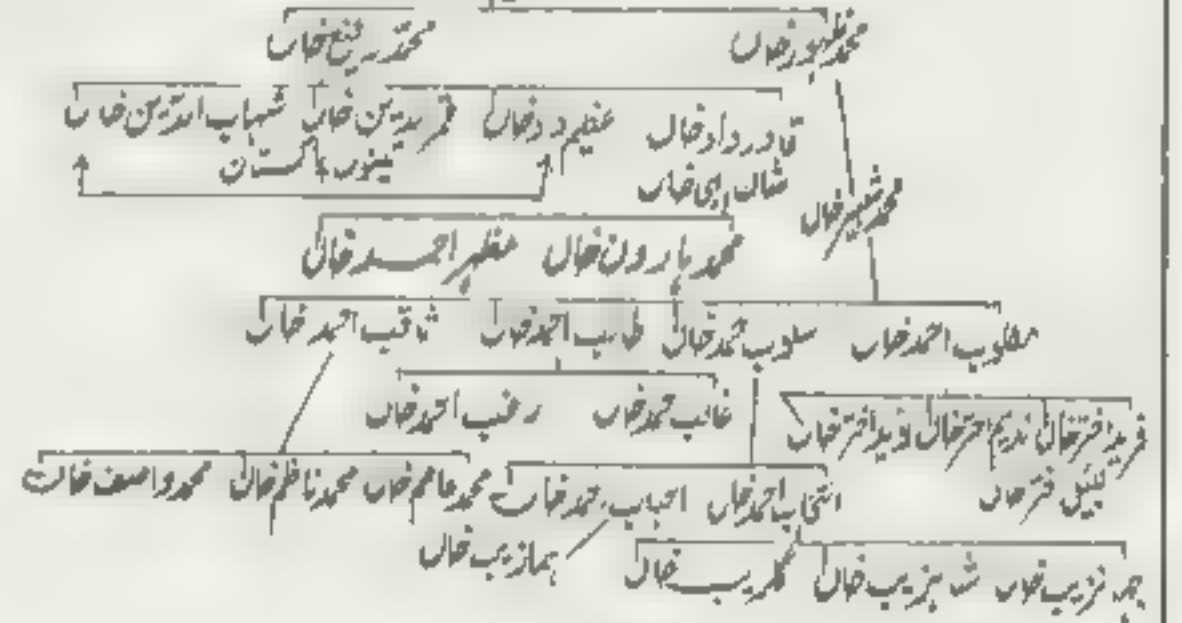 محمد ظہور خاں محمد رفیع خاں
قادر داد خاں عظیم داد خاں قمر الدین خاں شہاب الدین خاں
شان الہی خاں تینوں پاکستان
محمد شبیر خاں
محمد ہارون خاں مظہر احمد خاں
مطلوب احمد خاں سلوب احمد خاں طالب احمد خاں ثاقب احمد خاں
غالب احمد خاں راغب احمد خاں
فرید اختر خاں ندیم اختر خاں نوید اختر خاں
اختر خاں
انتخاب احمد خاں احباب احمد خاں محمد عاصم خاں محمد ناظم خاں محمد واصف خاں
ہمازیب خاں
زیب خاں شہزیب خاں گلریب خاں